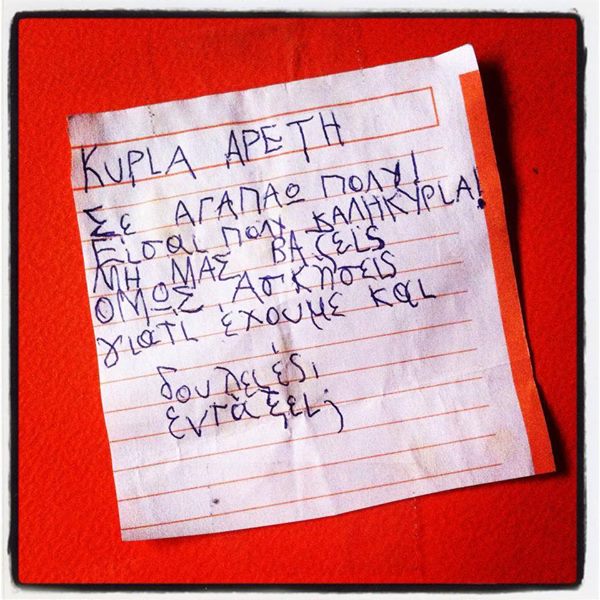 ΚΥΡΙΑ ΑΡΕΤΗ
Σε ΑΓΑΠΑΩ ΠΟΛΥ!
Είσαι πολυ ΚΑΛΗΚΥΡΙΑ!
ΜΗ ΜΑΣ ΒΑζεις
ΟΜΩΣ Ασκησεις
γιατι έχουμε και
δουλειές.
εντάξει;